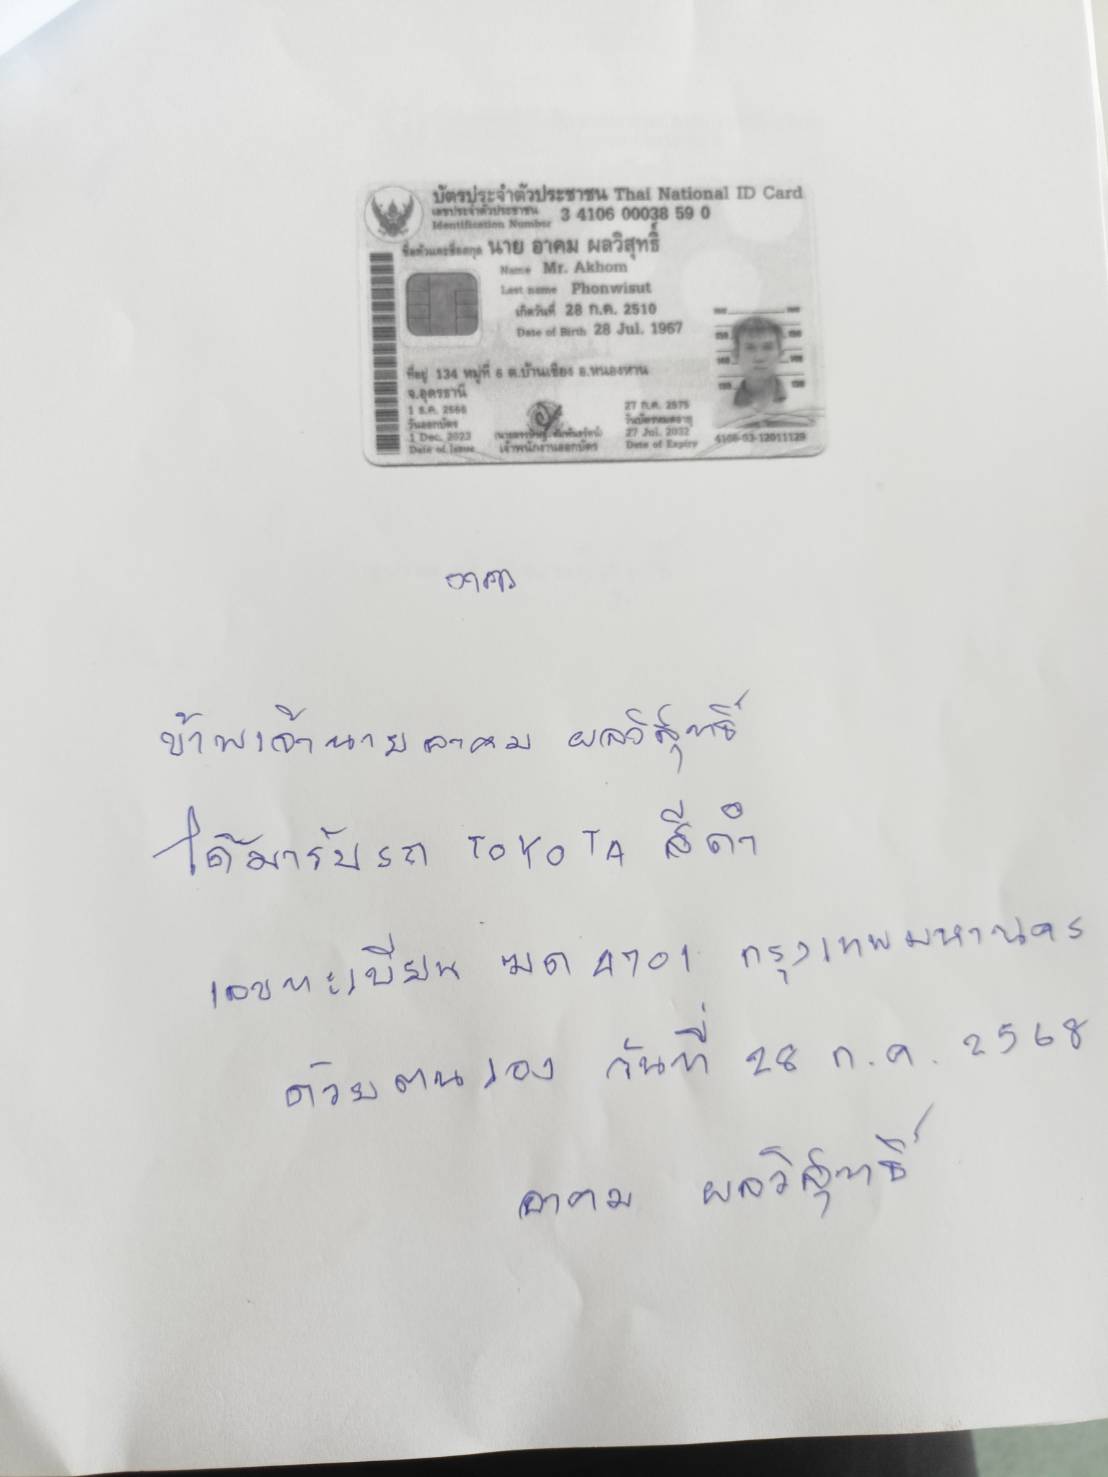 บัตรประจำตัวประชาชน Thai National ID Card
เลขประจำตัวประชาชน 3 4106 00038 59 0
Identification Number
ชื่อตัวและชื่อสกุล นาย อาคม ผลวิสุทธิ์
Name Mr. Akhom
Last name Phonwisut
เกิดวันที่ 28 ก.ค. 2510
Date of Birth 28 Jul. 1967
ที่อยู่ 134 หมู่ที่ 6 ต.บ้านเชียง อ.หนองหาน
จ.อุดรธานี
1 ธ.ค. 2566
วันออกบัตร
1 Dec. 2023
Date of Issue
เจ้าพนักงานออกบัตร
27 ก.ค. 2575
วันบัตรหมดอายุ
27 Jul. 2032
Date of Expiry
4106-03-12011129
อาคม
ข้าพเจ้านายอาคม ผลวิสุทธิ์
ได้มารับรถ TOYOTA สีดำ
เลขทะเบียน ฆต 4701 กรุงเทพมหานคร
ด้วยตนเอง วันที่ 28 ก.ค. 2568
อาคม ผลวิสุทธิ์